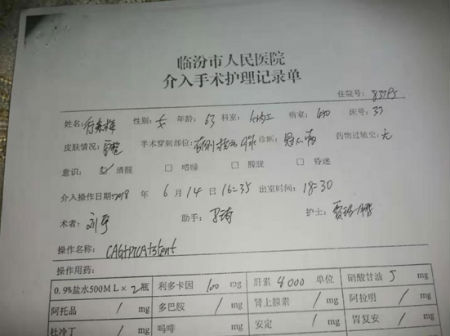 临汾市人民医院
介入手术护理记录单
住院号:
姓名: 性别:女 年龄:63 科室: 病室: 床号:33
皮肤情况:完整 手术穿刺部位: 诊断:冠心病 药物过敏史:无
意识: 清醒 □ 嗜睡 □ 朦胧 □ 昏迷
介入操作日期:2018 年 6 月 14 日 16:35 出室时间:18:30
术者: 助手: 护士:
操作名称:CAG+PTCA+Stent
操作用药:
0.9%盐水500ML×2瓶 利多卡因 100 mg 肝素 4000 单位 硝酸甘油 5 mg
阿托品 / mg 多巴胺 / mg 肾上腺素 / mg 阿拉明 / mg
杜冷丁 吗啡 安定 胃复安